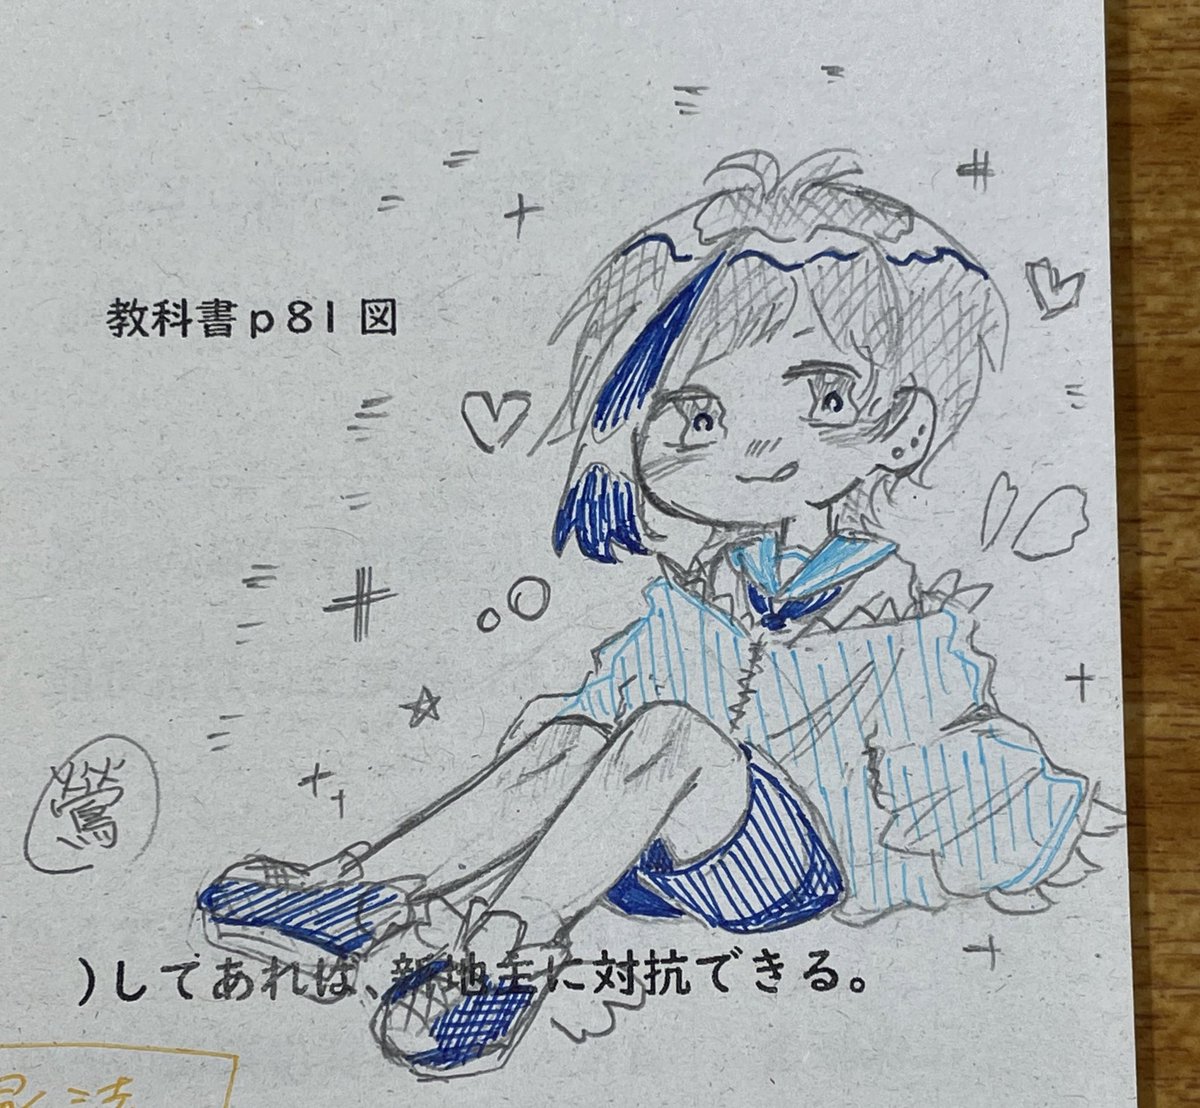 教科書p81図
鶯
)してあれば、新地主に対抗できる。